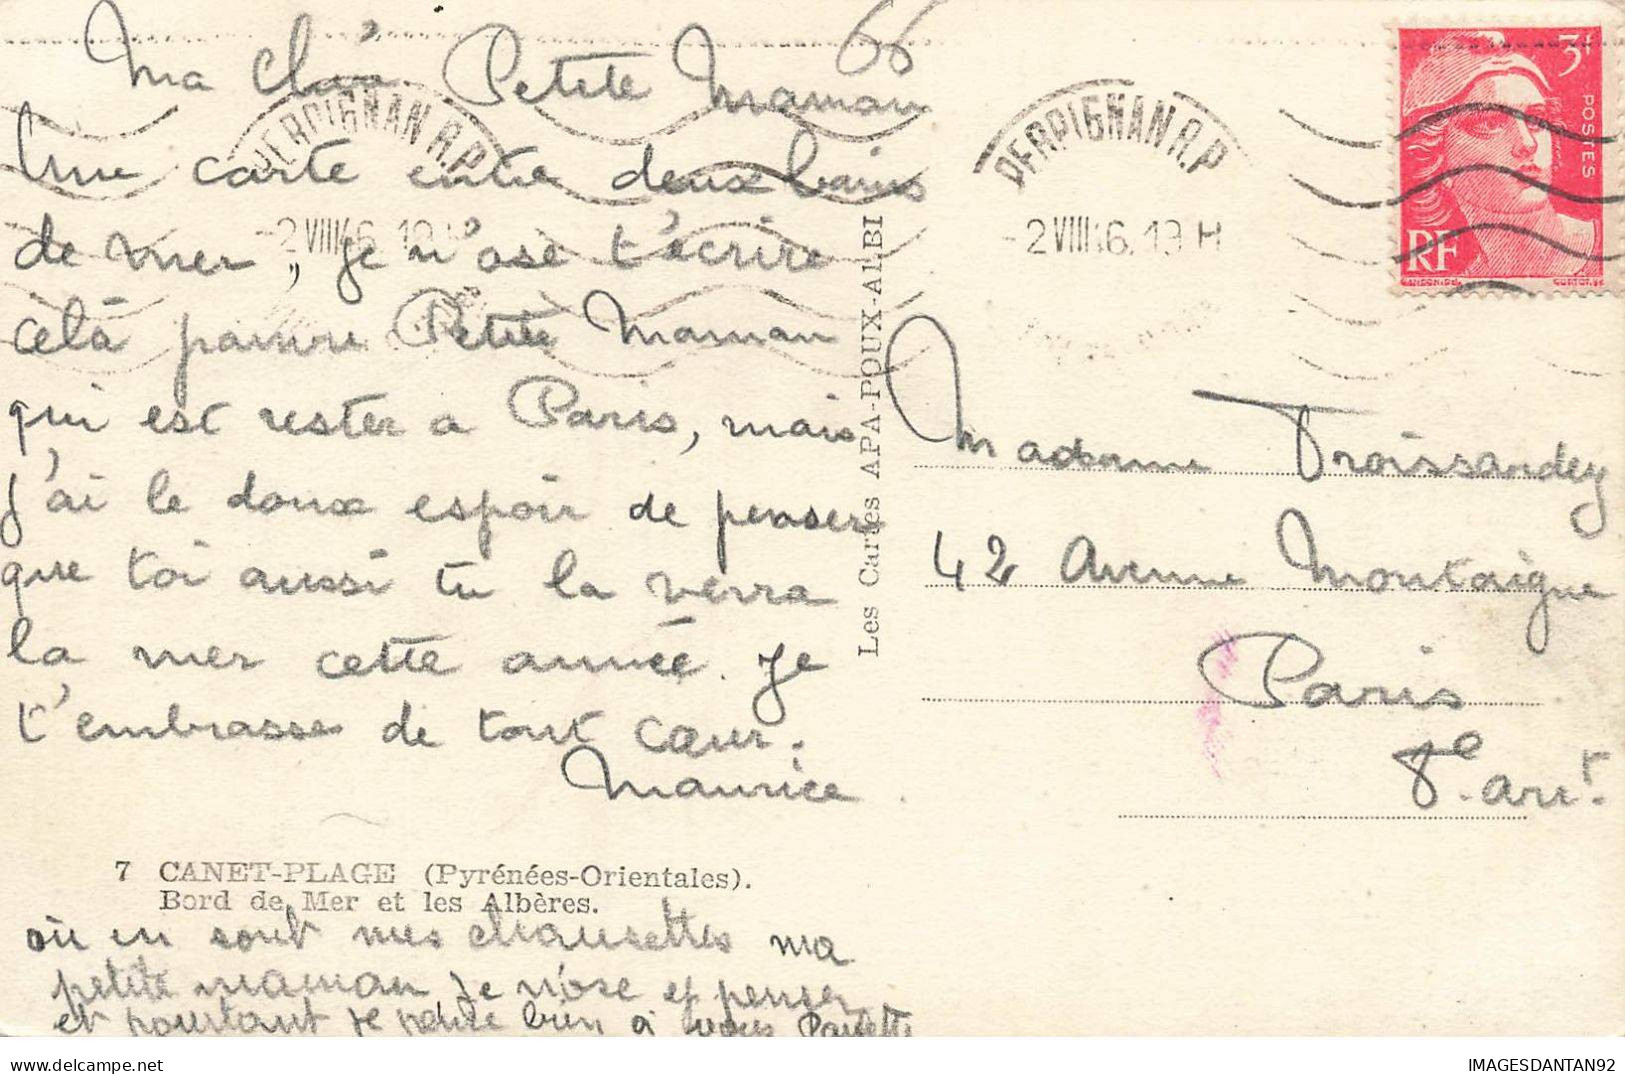 66
Ma Chér Petite Maman
Une carte entre deux bains
de mer, je n'ose t'écrire
celà pauvre Petite Maman
qui est rester a Paris, mais
j'ai le doux espoir de pensere
que toi aussi tu la verra
la mer cette année. Je
t'embrasse de tout cœur.
Maurice.
7 CANET-PLAGE (Pyrénées-Orientales).
Bord de Mer et les Albères.
où en sont mes chaussettes ma
petite maman je n'ose y penser
et pourtant je pense bien à vous Paulette
PERPIGNAN R.P
-2 VIII 46. 19 H
Les Cartes APA-POUX-ALBI
PERPIGNAN R.P
-2 VIII 46. 19 H
3F
POSTES
RF
GANDON
CORTOT
Madame Troissandey
42 Avenue Montaigne
Paris
8e. arrt.
IMAGESDANTAN92